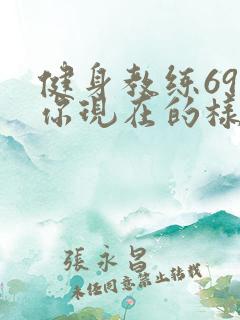 健身教练69
你現在的樣
張永昌
未经同意禁止转载